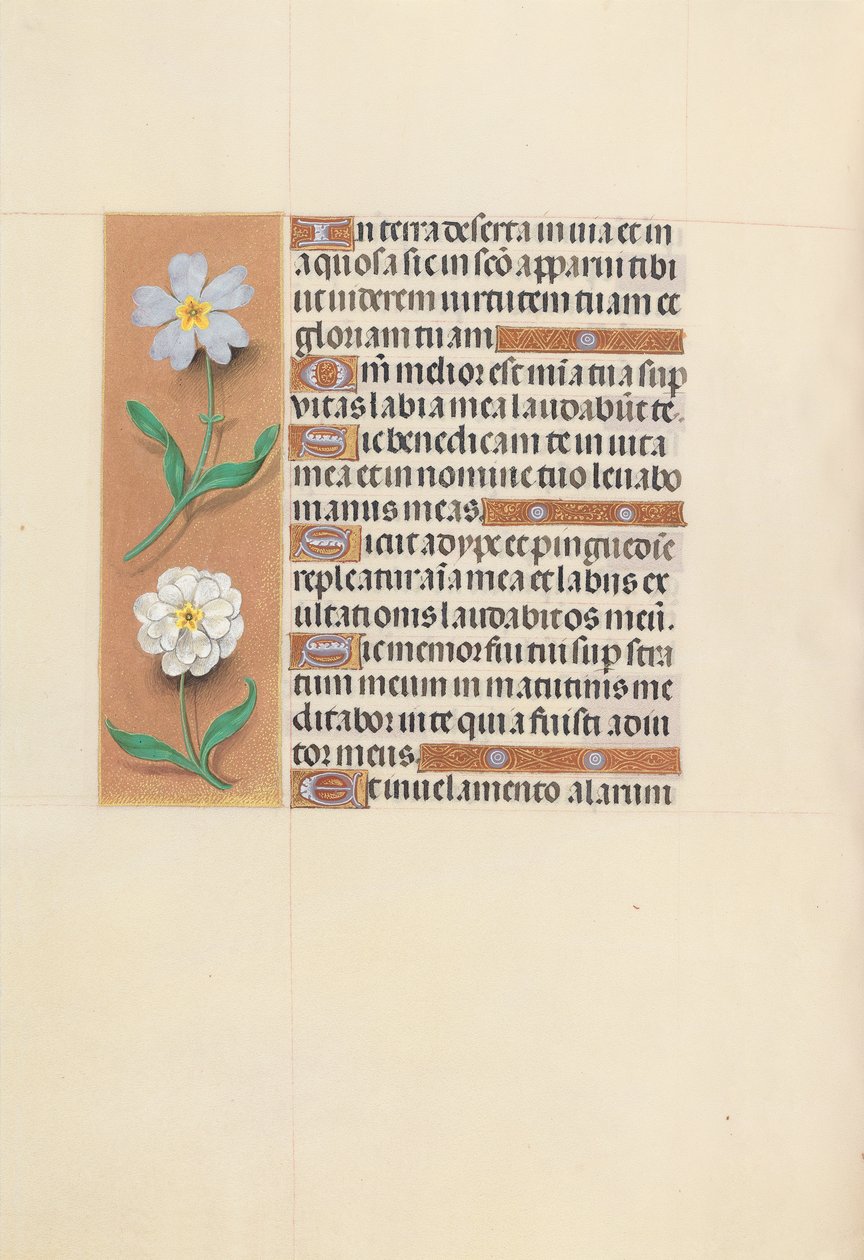 In terra deserta inuia et in
aquosa sic in scō apparui tibi
ut uiderem uirtutem tuam et
gloriam tuam
Qm̄ melior est mīa tua sup
vitas labia mea laudabūt te.
Sic benedicam te in uita
mea et in nomine tuo leuabo
manus meas.
Sicut adype et pinguedīe
repleatur aīa mea et labijs ex
ultationis laudabit os meū.
Sic memor fui tui sup stra
tum meum in matutinis me
ditabor in te quia fuisti adiu
tor meus.
Et in uelamento alarum